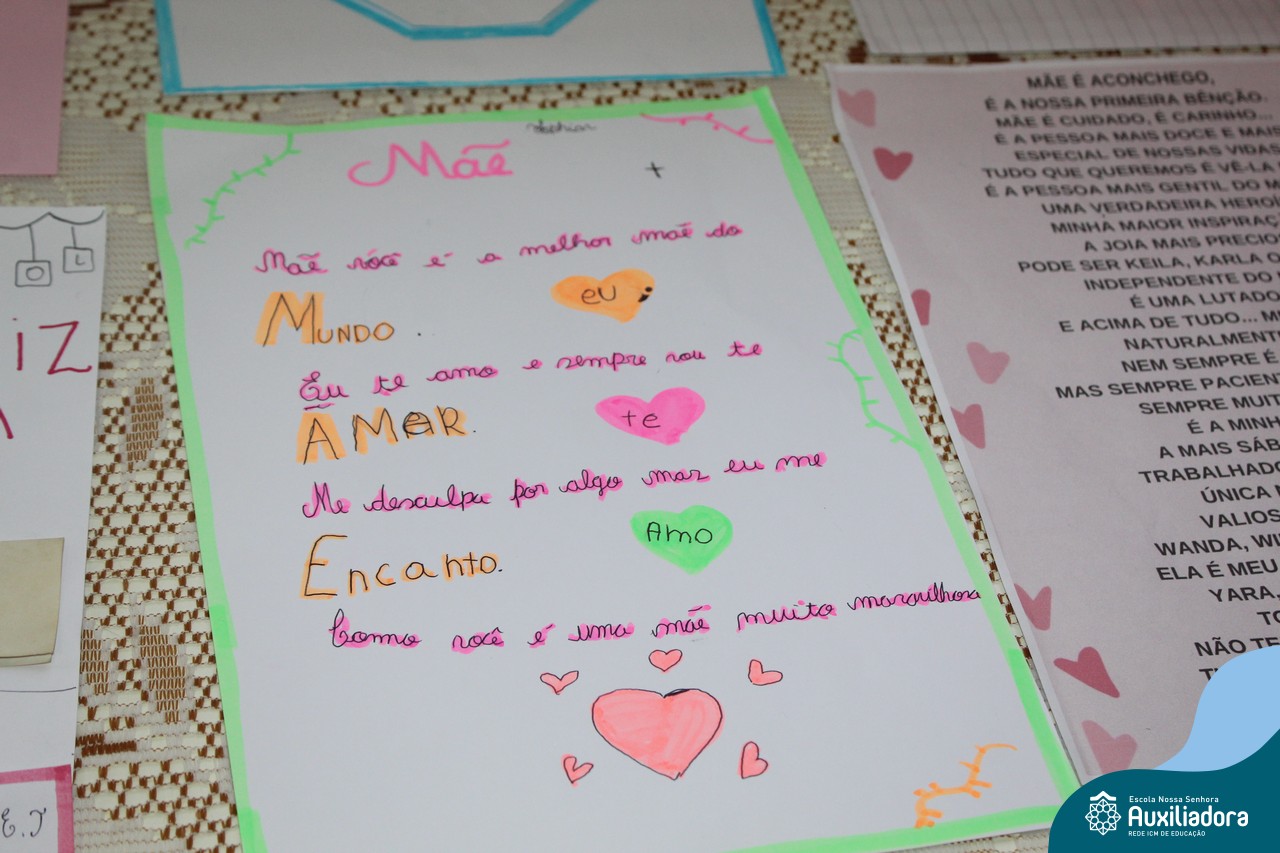 Mãe
Mãe você é a melhor mãe do
Mundo.
eu
Eu te amo e sempre vou te
AMAR.
te
Me desculpa por algo mas eu me
Encanto.
Amo
Como você é uma mãe muito maravilhosa
MÃE É ACONCHEGO,
É A NOSSA PRIMEIRA BÊNÇÃO.
MÃE É CUIDADO, É CARINHO...
É A PESSOA MAIS DOCE E MAIS
ESPECIAL DE NOSSAS VIDAS
TUDO QUE QUEREMOS É VÊ-LA
É A PESSOA MAIS GENTIL DO
UMA VERDADEIRA
MINHA MAIOR
A JOIA MAIS
PODE SER KEILA, KARLA
INDEPENDENTE DO
É UMA
E ACIMA DE TUDO...
NEM SEMPRE É
MAS SEMPRE
SEMPRE
É A
A MAIS
ÚNICA
WANDA,
ELA É MEU
YARA
NÃO
O L
IZ
E.T
Escola Nossa Senhora
Auxiliadora
REDE ICM DE EDUCAÇÃO